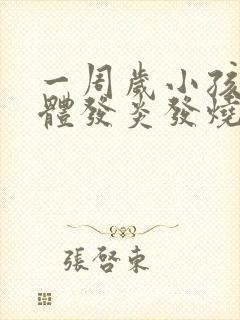 一周岁小孩
體發炎發燒
張啓東